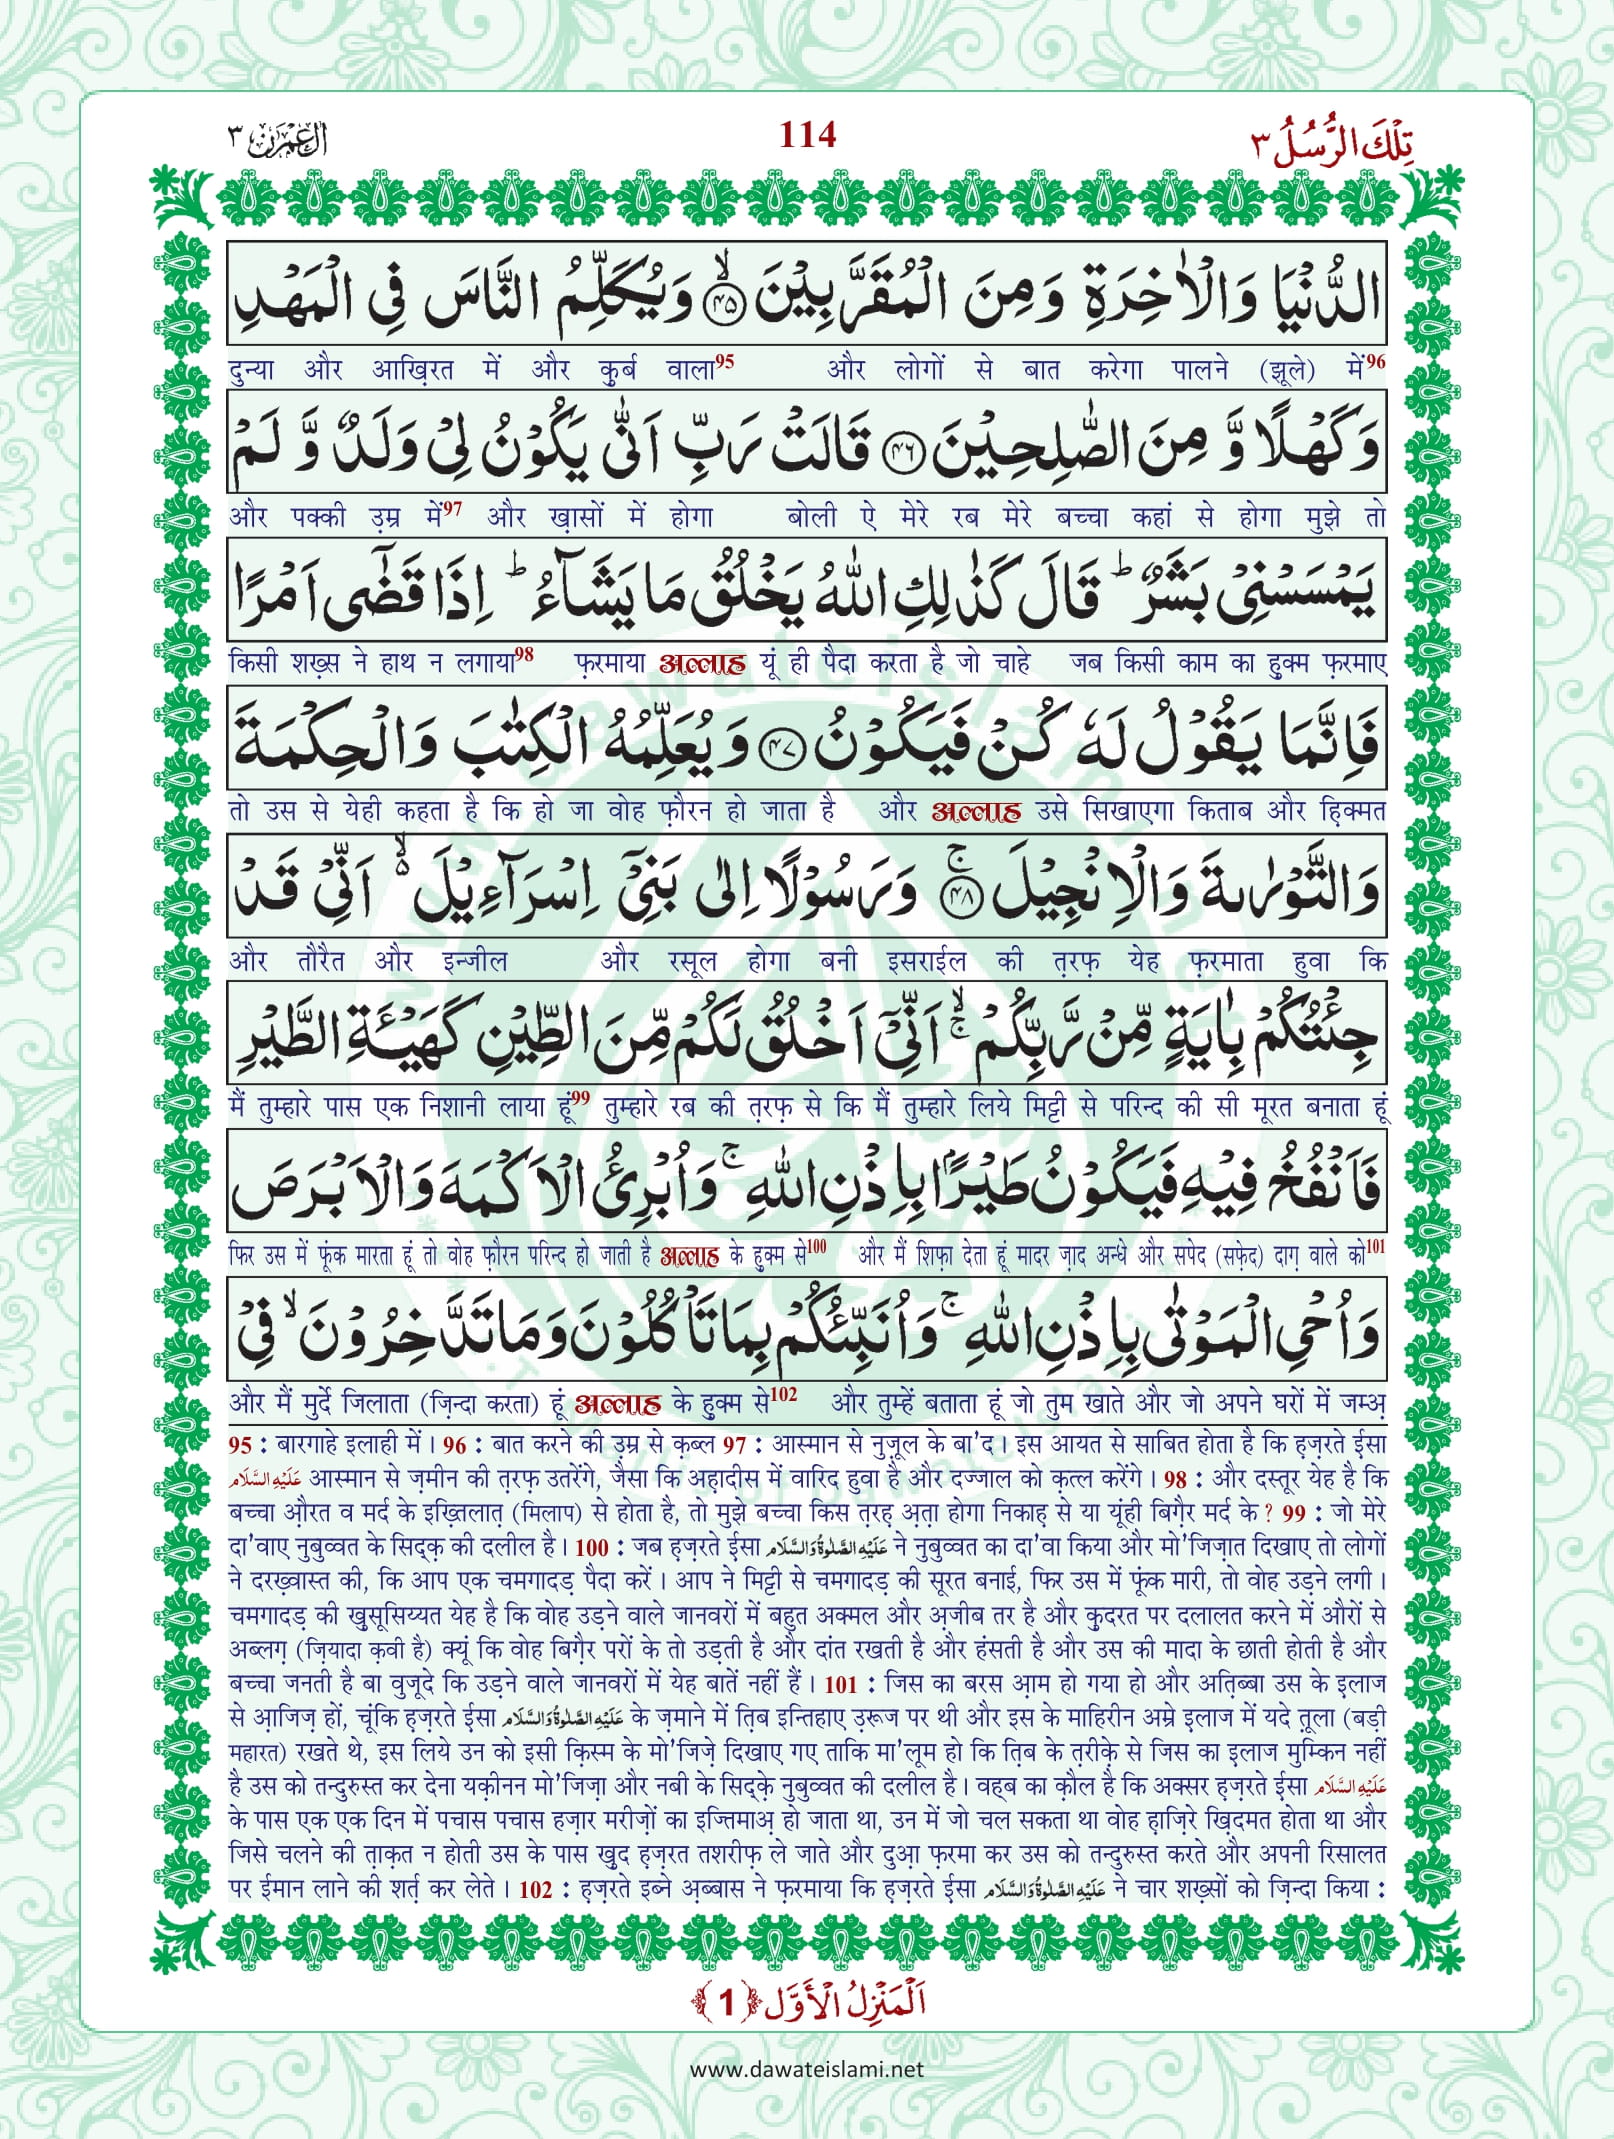 تِلْكَ الرُّسُلُ ٣
114
اٰل عِمْرٰن ٣
الدُّنْيَا وَالْاٰخِرَةِ وَمِنَ الْمُقَرَّبِيْنَ ۙ﴿۴۵﴾ وَيُكَلِّمُ النَّاسَ فِى الْمَهْدِ
दुन्या और आख़िरत में और कुर्ब वाला95 और लोगों से बात करेगा पालने (झूले) में96
وَكَهْلًا وَّ مِنَ الصّٰلِحِيْنَ ﴿۴۶﴾ قَالَتْ رَبِّ اَنّٰى يَكُوْنُ لِىْ وَلَدٌ وَّ لَمْ
और पक्की उम्र में97 और ख़ासों में होगा बोली ऐ मेरे रब मेरे बच्चा कहां से होगा मुझे तो
يَمْسَسْنِىْ بَشَرٌ ؕ قَالَ كَذٰلِكِ اللّٰهُ يَخْلُقُ مَا يَشَآءُ ؕ اِذَا قَضٰۤى اَمْرًا
किसी शख़्स ने हाथ न लगाया98 फ़रमाया अल्लाह यूं ही पैदा करता है जो चाहे जब किसी काम का हुक्म फ़रमाए
فَاِنَّمَا يَقُوْلُ لَهٗ كُنْ فَيَكُوْنُ ﴿۴۷﴾ وَيُعَلِّمُهُ الْكِتٰبَ وَالْحِكْمَةَ
तो उस से येही कहता है कि हो जा वोह फ़ौरन हो जाता है और अल्लाह उसे सिखाएगा किताब और हिक्मत
وَالتَّوْرٰىةَ وَالْاِنْجِيْلَ ۚ﴿۴۸﴾ وَرَسُوْلًا اِلٰى بَنِىْۤ اِسْرَآءِيْلَ ۙ۬ اَنِّىْ قَدْ
और तौरैत और इन्जील और रसूल होगा बनी इसराईल की त़रफ़ येह फ़रमाता हुवा कि
جِئْتُكُمْ بِاٰيَةٍ مِّنْ رَّبِّكُمْ ۙۚ اَنِّىْۤ اَخْلُقُ لَكُمْ مِّنَ الطِّيْنِ كَهَيْـَٔةِ الطَّيْرِ
मैं तुम्हारे पास एक निशानी लाया हूं99 तुम्हारे रब की त़रफ़ से कि मैं तुम्हारे लिये मिट्टी से परिन्द की सी मूरत बनाता हूं
فَاَنْفُخُ فِيْهِ فَيَكُوْنُ طَيْرًۢا بِاِذْنِ اللّٰهِ ۚ وَاُبْرِئُ الْاَكْمَهَ وَالْاَبْرَصَ
फिर उस में फूंक मारता हूं तो वोह फ़ौरन परिन्द हो जाती है अल्लाह के हुक्म से100 और मैं शिफ़ा देता हूं मादर ज़ाद अन्धे और सपेद (सफ़ेद) दाग़ वाले को101
وَاُحْىِ الْمَوْتٰى بِاِذْنِ اللّٰهِ ۚ وَاُنَبِّئُكُمْ بِمَا تَاْكُلُوْنَ وَمَا تَدَّخِرُوْنَ ۙ فِىْ
और मैं मुर्दे जिलाता (ज़िन्दा करता) हूं अल्लाह के हुक्म से102 और तुम्हें बताता हूं जो तुम खाते और जो अपने घरों में जम्अ़
95 : बारगाहे इलाही में। 96 : बात करने की उम्र से क़ब्ल 97 : आस्मान से नुज़ूल के बा'द। इस आयत से साबित होता है कि ह़ज़रते ईसा
عَلَيْهِ السَّلَام आस्मान से ज़मीन की त़रफ़ उतरेंगे, जैसा कि अह़ादीस में वारिद हुवा है और दज्जाल को क़त्ल करेंगे। 98 : और दस्तूर येह है कि
बच्चा औ़रत व मर्द के इख़्तिलात़ (मिलाप) से होता है, तो मुझे बच्चा किस त़रह़ अ़त़ा होगा निकाह़ से या यूंही बिग़ैर मर्द के? 99 : जो मेरे
दा'वाए नुबुव्वत के सिद्क़ की दलील है। 100 : जब ह़ज़रते ईसा عَلَيْهِ الصَّلٰوةُ وَالسَّلَام ने नुबुव्वत का दा'वा किया और मो'जिज़ात दिखाए तो लोगों
ने दरख़्वास्त की, कि आप एक चमगादड़ पैदा करें। आप ने मिट्टी से चमगादड़ की सूरत बनाई, फिर उस में फूंक मारी, तो वोह उड़ने लगी।
चमगादड़ की ख़ुसूसिय्यत येह है कि वोह उड़ने वाले जानवरों में बहुत अक्मल और अ़जीब तर है और क़ुदरत पर दलालत करने में औरों से
अब्लग़ (ज़ियादा क़वी है) क्यूं कि वोह बिग़ैर परों के तो उड़ती है और दांत रखती है और हंसती है और उस की मादा के छाती होती है और
बच्चा जनती है बा वुजूदे कि उड़ने वाले जानवरों में येह बातें नहीं हैं। 101 : जिस का बरस आ़म हो गया हो और अति़ब्बा उस के इलाज
से आ़जिज़ हों, चूंकि ह़ज़रते ईसा عَلَيْهِ الصَّلٰوةُ وَالسَّلَام के ज़माने में ति़ब इन्तिहाए उ़रूज पर थी और इस के माहिरीन अम्रे इलाज में यदे तू़ला (बड़ी
महारत) रखते थे, इस लिये उन को इसी क़िस्म के मो'जिज़े दिखाए गए ताकि मा'लूम हो कि ति़ब के त़रीक़े से जिस का इ़लाज मुम्किन नहीं
है उस को तन्दुरुस्त कर देना यक़ीनन मो'जिज़ा और नबी के सिद्क़े नुबुव्वत की दलील है। वह्ब का क़ौल है कि अक्सर ह़ज़रते ईसा عَلَيْهِ السَّلَام
के पास एक एक दिन में पचास पचास हज़ार मरीज़ों का इज्तिमाअ़ हो जाता था, उन में जो चल सकता था वोह ह़ाज़िरे ख़िदमत होता था और
जिसे चलने की त़ाक़त न होती उस के पास ख़ुद ह़ज़रत तशरीफ़ ले जाते और दुआ़ फ़रमा कर उस को तन्दुरुस्त करते और अपनी रिसालत
पर ईमान लाने की शर्त़ कर लेते। 102 : ह़ज़रते इब्ने अ़ब्बास ने फ़रमाया कि ह़ज़रते ईसा عَلَيْهِ الصَّلٰوةُ وَالسَّلَام ने चार शख़्सों को ज़िन्दा किया :
اَلْمَنْزِلُ الْاَوَّل ﴿1﴾
www.dawateislami.net